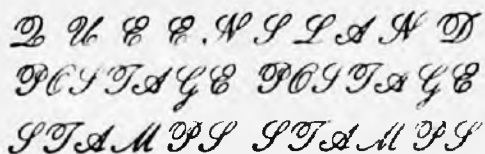 QUEENSLAND
POSTAGE POSTAGE
STAMPS STAMPS